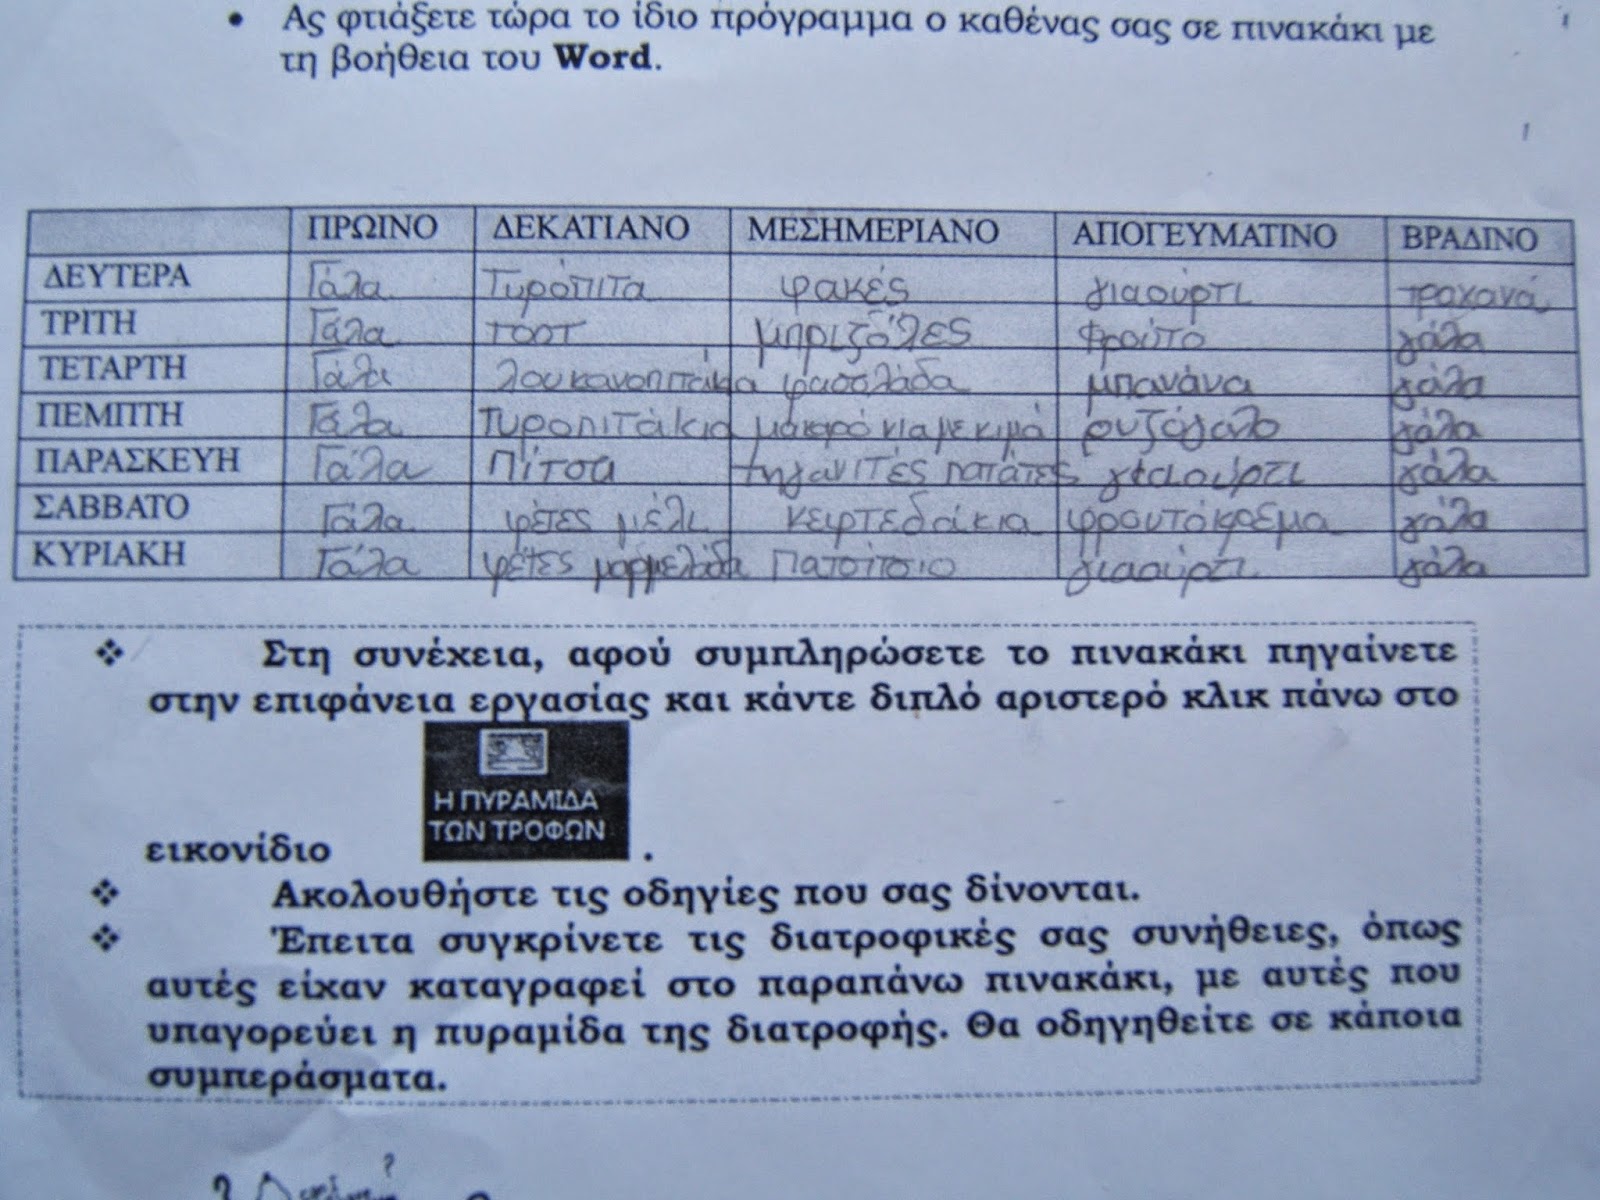 • Ας φτιάξετε τώρα το ίδιο πρόγραμμα ο καθένας σας σε πινακάκι με
τη βοήθεια του Word.
ΠΡΩΙΝΟ ΔΕΚΑΤΙΑΝΟ ΜΕΣΗΜΕΡΙΑΝΟ ΑΠΟΓΕΥΜΑΤΙΝΟ ΒΡΑΔΙΝΟ
ΔΕΥΤΕΡΑ Γάλα Τυρόπιτα φακές γιαούρτι τραχανά
ΤΡΙΤΗ Γάλα τοστ μπριζόλες Φρούτο γάλα
ΤΕΤΑΡΤΗ Γάλα λουκανοπιτάκια φασολάδα μπανάνα γάλα
ΠΕΜΠΤΗ Γάλα Τυροπιτάκια μακαρόνια με κιμά ρυζόγαλο γάλα
ΠΑΡΑΣΚΕΥΗ Γάλα Πίτσα τηγανιτές πατάτες γιαούρτι γάλα
ΣΑΒΒΑΤΟ Γάλα φέτες μέλι κεφτεδάκια φρουτόκρεμα γάλα
ΚΥΡΙΑΚΗ Γάλα φέτες μαρμελάδα Παστίτσιο γιαούρτι γάλα
❖ Στη συνέχεια, αφού συμπληρώσετε το πινακάκι πηγαίνετε
στην επιφάνεια εργασίας και κάντε διπλό αριστερό κλικ πάνω στο
Η ΠΥΡΑΜΙΔΑ
ΤΩΝ ΤΡΟΦΩΝ
εικονίδιο .
❖ Ακολουθήστε τις οδηγίες που σας δίνονται.
❖ Έπειτα συγκρίνετε τις διατροφικές σας συνήθειες, όπως
αυτές είχαν καταγραφεί στο παραπάνω πινακάκι, με αυτές που
υπαγορεύει η πυραμίδα της διατροφής. Θα οδηγηθείτε σε κάποια
συμπεράσματα.